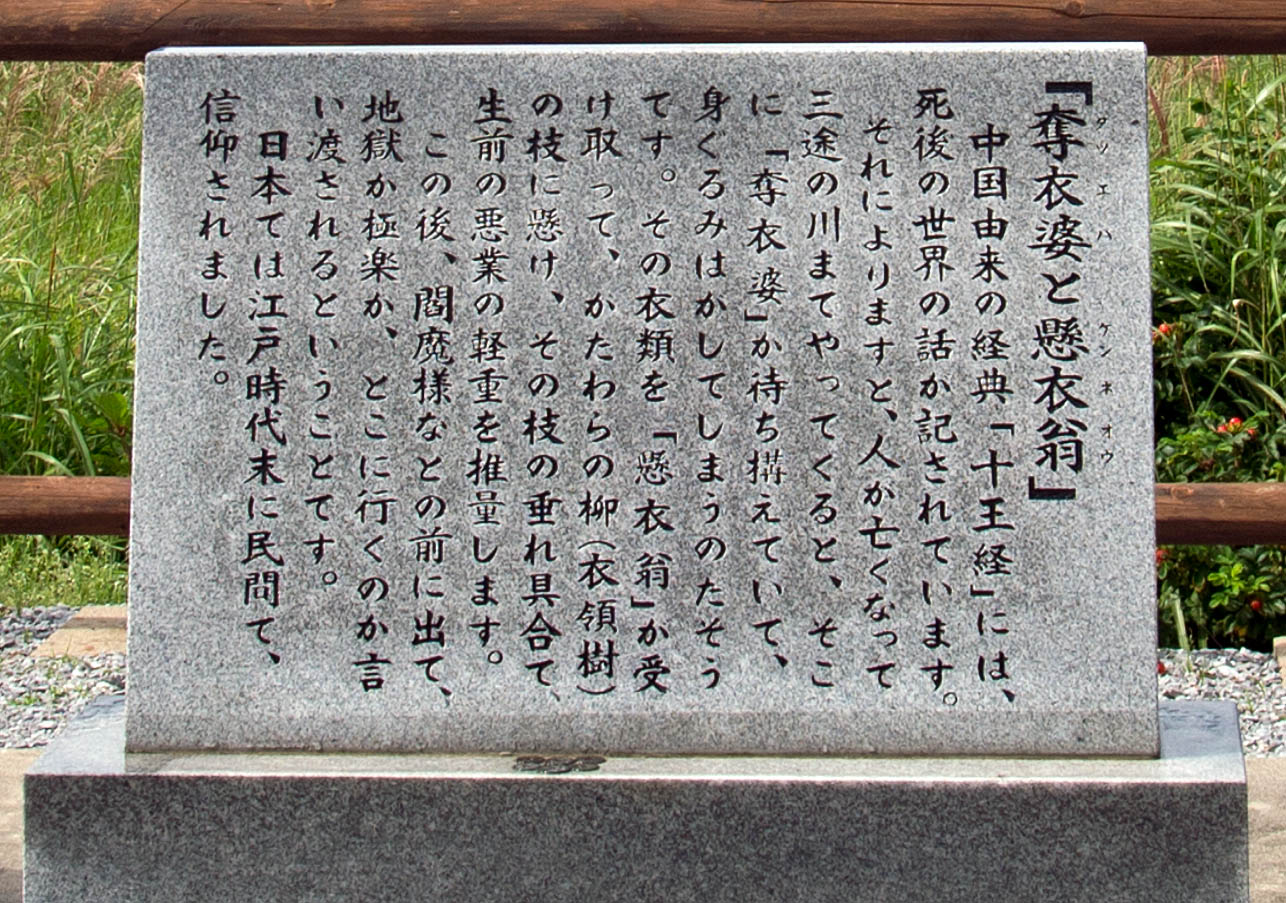 『奪衣婆と懸衣翁』
タツエハ ケンネオウ
中国由来の経典「十王経」には、
死後の世界の話か記されています。
それによりますと、人か亡くなって
三途の川まてやってくると、そこ
に「奪衣婆」か待ち構えていて、
身ぐるみはかしてしまうのたそう
てす。その衣類を「懸衣翁」か受
け取って、かたわらの柳(衣領樹)
の枝に懸け、その枝の垂れ具合て、
生前の悪業の軽重を推量します。
この後、閻魔様なとの前に出て、
地獄か極楽か、とこに行くのか言
い渡されるということてす。
日本ては江戸時代末に民間て、
信仰されました。